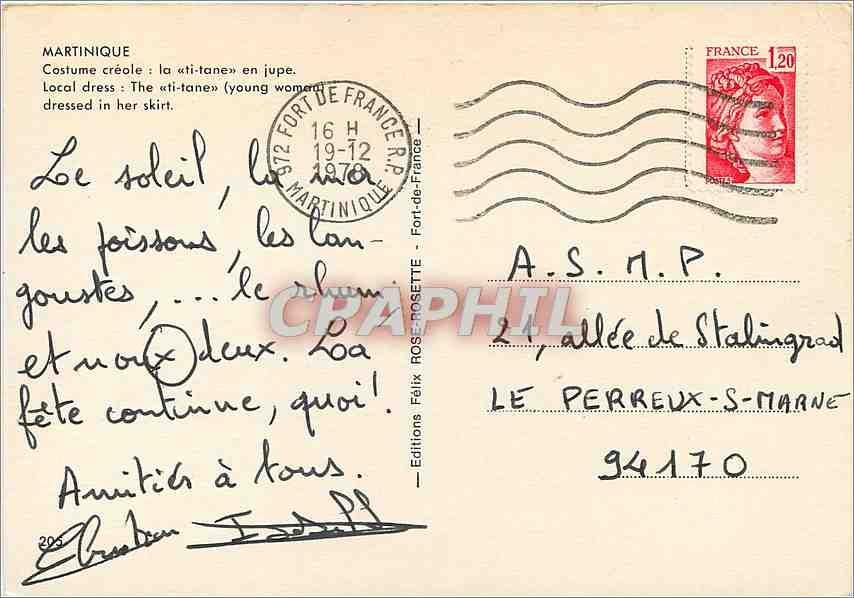 MARTINIQUE
Costume créole : la «ti-tane» en jupe.
Local dress : The «ti-tane» (young woman)
dressed in her skirt.
972 FORT DE FRANCE R.P.
16 H
19-12
1978
MARTINIQUE
FRANCE 1,20
Le soleil, la mer
les poissons, les lan-
goustes, ... le rhum,
et noux deux. La
fête continue, quoi!
Amitiés à tous.
Christian Isabelle
205
Editions Félix ROSE-ROSETTE - Fort-de-France
CPAPHIL
A.S.M.P.
21, allée de Stalingrad
LE PERREUX-S-MARNE
94170